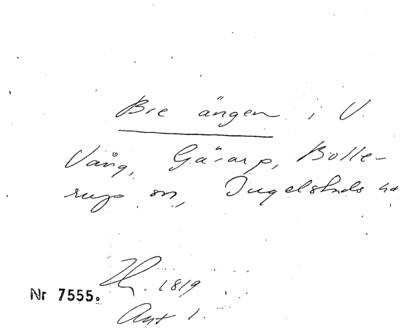 Bre ängen i V.
Vång, Gårarp, Bolle-
rup sn, Ingelstads hd
1819
Nr 7555.
Akt 1.